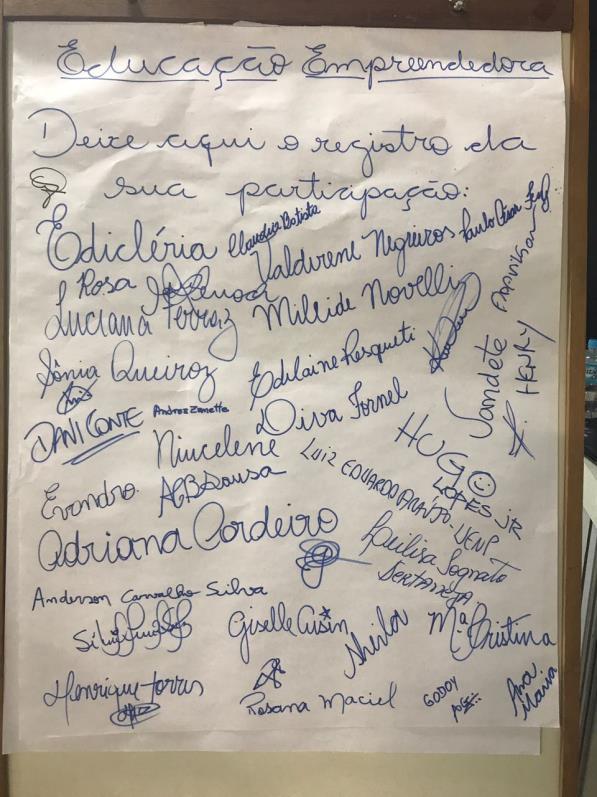 Educação Empreendedora
Deixe aqui o registro da
sua participação:
Edicléria
Claudia Batista
Valdirene Negreiros
Paulo César
Rosa
Luciana Ferraz
Millide Novelli
Franilson
Sônia Queiroz
Edilaine Resqueti
Jandete
HENRY
DANI CONTE
Andrea Zanetta
Diva Fornel
HUGO
LOPES JR
Niucelene
LUIZ EDUARDO ARAUJO - UENP
Evandro
AGBSousa
Adriana Cordeiro
SERTANEJA
Anderson Carvalho Silva
Giselle Cusin
Sheila
Mª Cristina
Henrique Torres
Rosana Maciel
GODOY
Ana
Maria